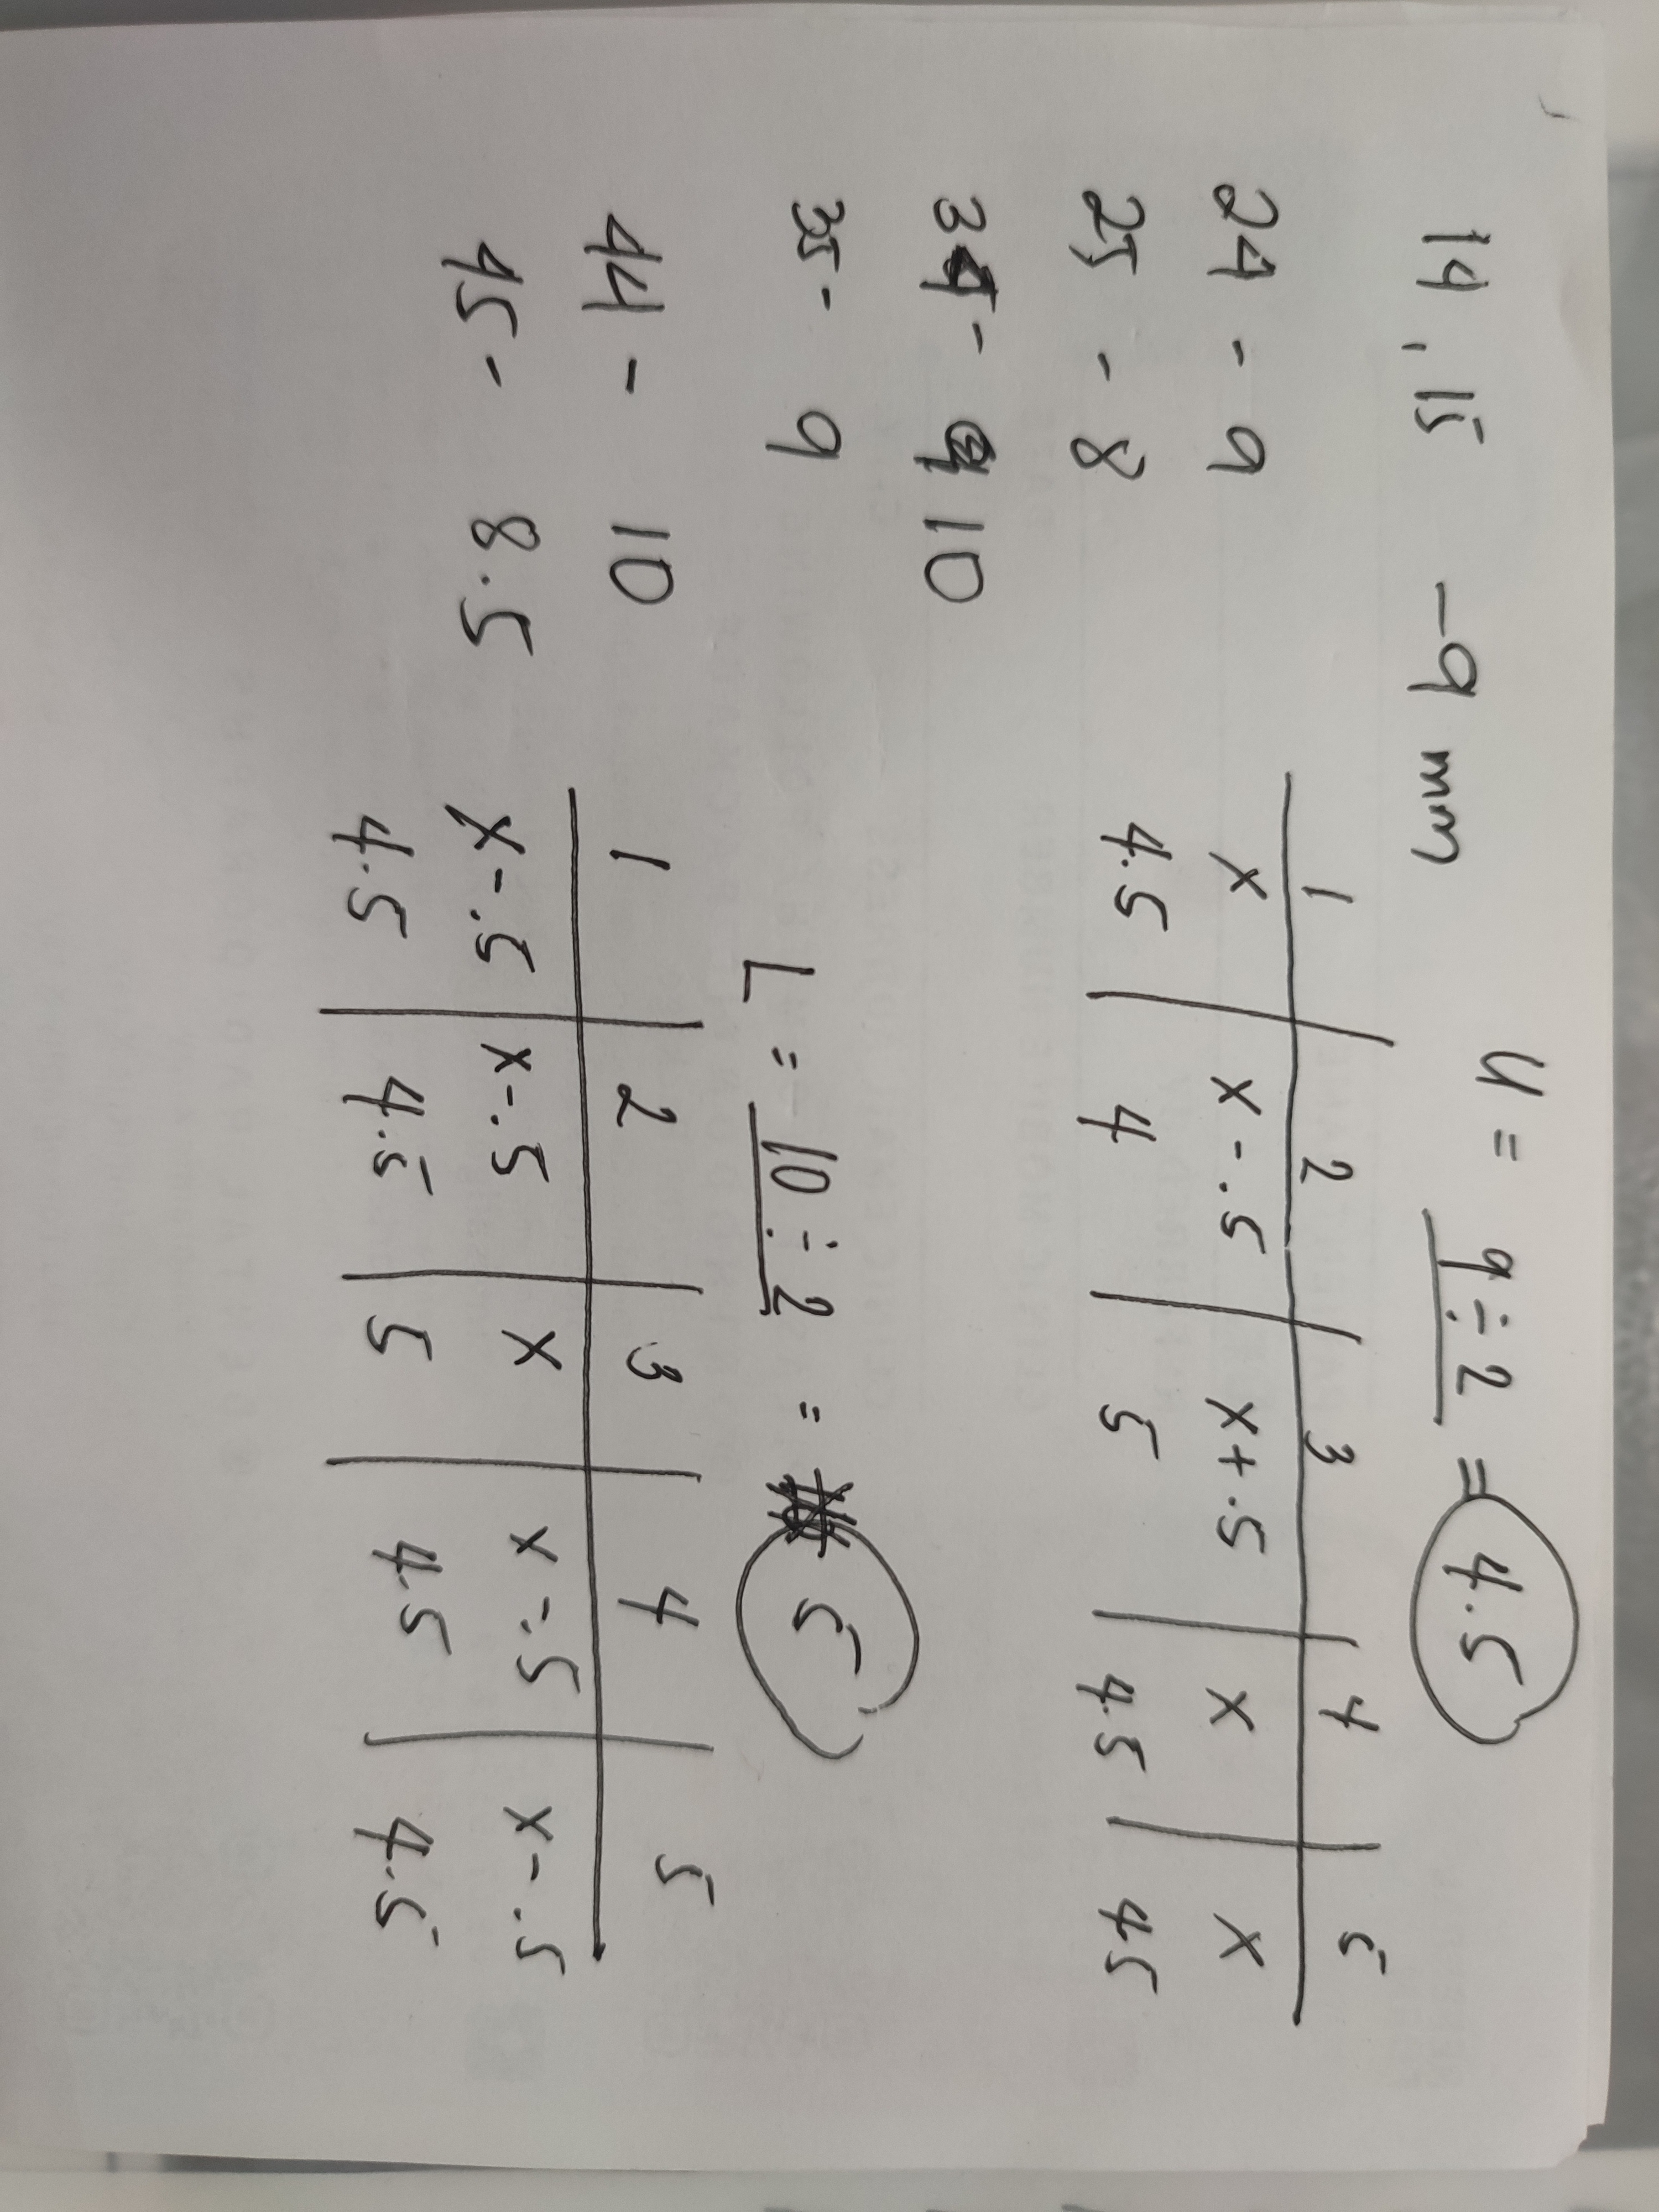 14, 15 - 9 mm
24 - 9
25 - 8
34 - 10
35 - 9
44 - 10
45 - 8.5
U = 9 ÷ 2 = 4.5
1 2 3 4 5
x x-.5 x+.5 x x
4.5 4 5 4.5 4.5
L = 10 ÷ 2 = 5
1 2 3 4 5
x-.5 x-.5 x x-.5 x-.5
4.5 4.5 5 4.5 4.5